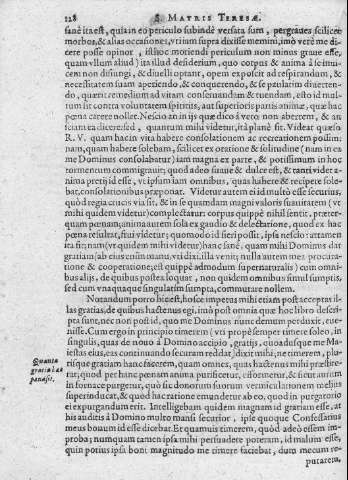 128 S. MATRIS TERESÆ.
sanè ita est, quia in eo periculo subindè versata sum, pergraues scilicet
morbos, & alias occasiones, vti iam supra dixisse memini, imò verè me di-
cere posse opinor, isthoc moriendi periculum non minus graue esse,
quam vllum aliud) ita illud desiderium, quo corpus & anima à se inui-
cem non disiungi, & diuelli optant, opem exposcit ad respirandum, &
necessitatem suam aperiendo, & conquerendo, & se paululùm diuerten-
do, quærit remedium ad vitam conseruandam & tuendam, esto id mul-
tum sit contra voluntatem spiritus, aut superioris partis animæ, quæ hac
pœna carere nollet. Nescio an in ijs quæ dico à vero non aberrem, & an
sciam ea dicere: sed, quantum mihi videtur, ità planè fit. Videat quæso
R. V. quam hac in vita habere consolationem ac recreationem possim:
nam, quam habere solebam, scilicet ex oratione & solitudine (nam in ea
me Dominus consolabatur) iam magna ex parte, & potissimum in hoc
tormentum commigrauit; quod adeo suaue & dulce est, & tanti videt a-
nima pretij id esse, vt ipsum iam omnibus, quas habere & recipere sole-
bat, consolationibus præponat. Videtur autem ei id multò esse securius,
quòd regia crucis via sit, & in se quamdam magni valoris suauitatem (vt
mihi quidem videtur) complectatur: corpus quippè nihil sentit, præter-
quam pœnam; anima autem sola ex gaudio & delectatione, quod ex hac
pœna resultat, fruitur videtur; quomodo id fieri possit, ipsa nescio: attamen
ita fit; nam (vt quidem mihi videtur) hanc sanè, quam mihi Dominus dat
gratiam (ab eius enim manu, vti dixi, illa venit; nulla autem mea procura-
tione & cooperatione; est quippè admodum supernaturalis) cum omni-
bus alijs, de quibus postea loquar, non quidem omnibus simul sumptis,
sed cum vnaquaque singulatim sumpta, commutare nollem.
Notandum porro hic est, hosce impetus mihi etiam post acceptas il-
las gratias, de quibus hactenus egi, imò post omnia quæ hoc libro descri-
pta sunt, nec non post id, quo me Dominus nunc demum ponit, eue-
nisse. Cum ergo in principio timerem (vt propè semper timere soleo, in
singulis, quas de nouo à Domino accipio, gratijs, quoadusque me Ma-
iestas eius, eas continuando securam reddat) dixit mihi; ne timerem, plu-
risque gratiam hanc facerem, quam omnes, quas hactenus mihi præstite-
rat; quod per hanc pœnam anima purificetur, efformetur, & sicut aurum
in fornace purgetur, quò sic donorum suorum vermiculationem meliùs
superinducat, & quod hac ratione emundetur ab eo, quod in purgatorio
ei expurgandum erit. Intelligebam quidem magnam id gratiam esse, at
his auditis à Domino multo mansi securior, ipse quoque Confessarius
meus bonum id esse dicebat. Et quamuis timerem, quòd adeò essem im-
proba; numquam tamen ipsa mihi persuadere poteram, id malum esse,
quin potius ipsa boni magnitudo me timere faciebat, dum mecum re-
putarem,
Quanta
gratia
panasit.